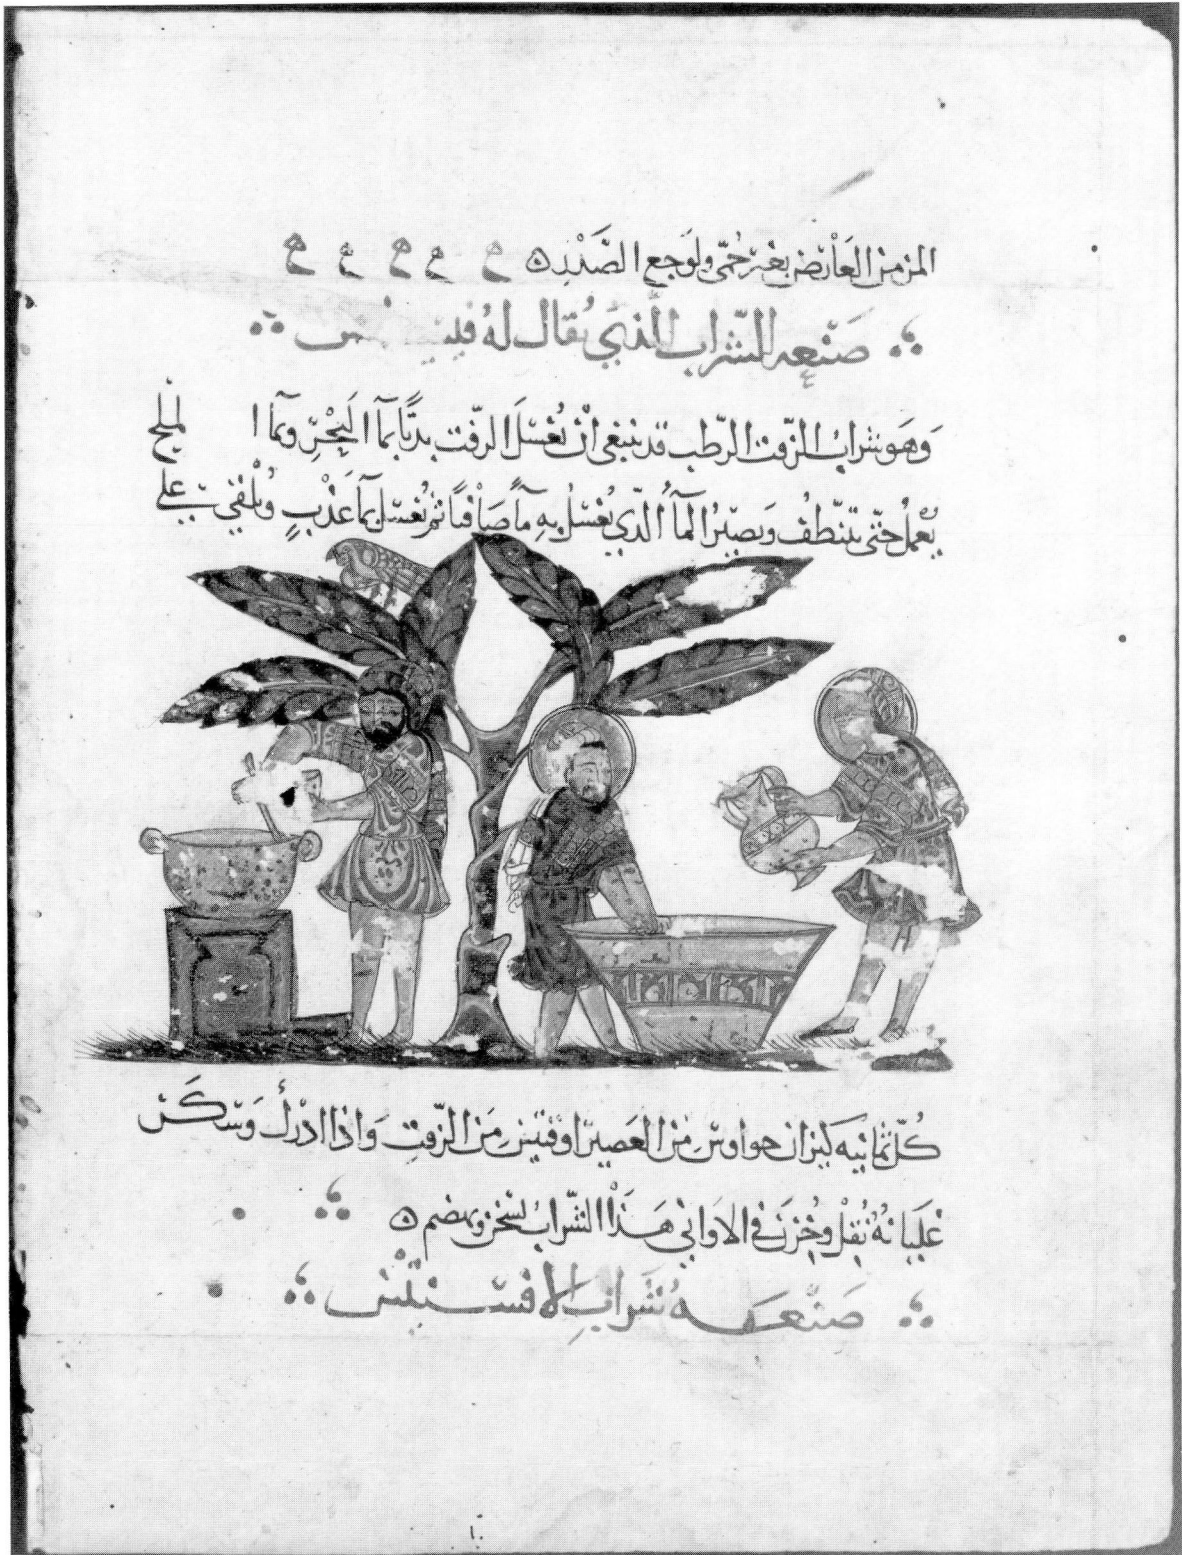 المزمن العارض بغير حُمّى ولوجع الصّدر ه
صنعه الشراب الذي يُقال لهُ
وهو شراب الزّفت الرّطب قد ينبغي انْ يُغسَل الزفت بديًّا بمآ البَحْرِ وبمآ الملح
يُعْملُ حتّى يتنظف ويصيرُ المآ الّذي يُغسَلُ بهِ مآً صَافيًا ثم يُغسَل بمآ عَذْبٍ ويُلقي علي
كُلّ ثمانيه كيزان من العَصير اوقيتين مَن الزّفتِ وَاذا ادْرك وَسَكَن
غليانهُ نُقِلْ وخُزنَ في الاَواني هَذَا الشّرابُ يُسخن ويهضم ه
صنعه شَراب الافسنتين